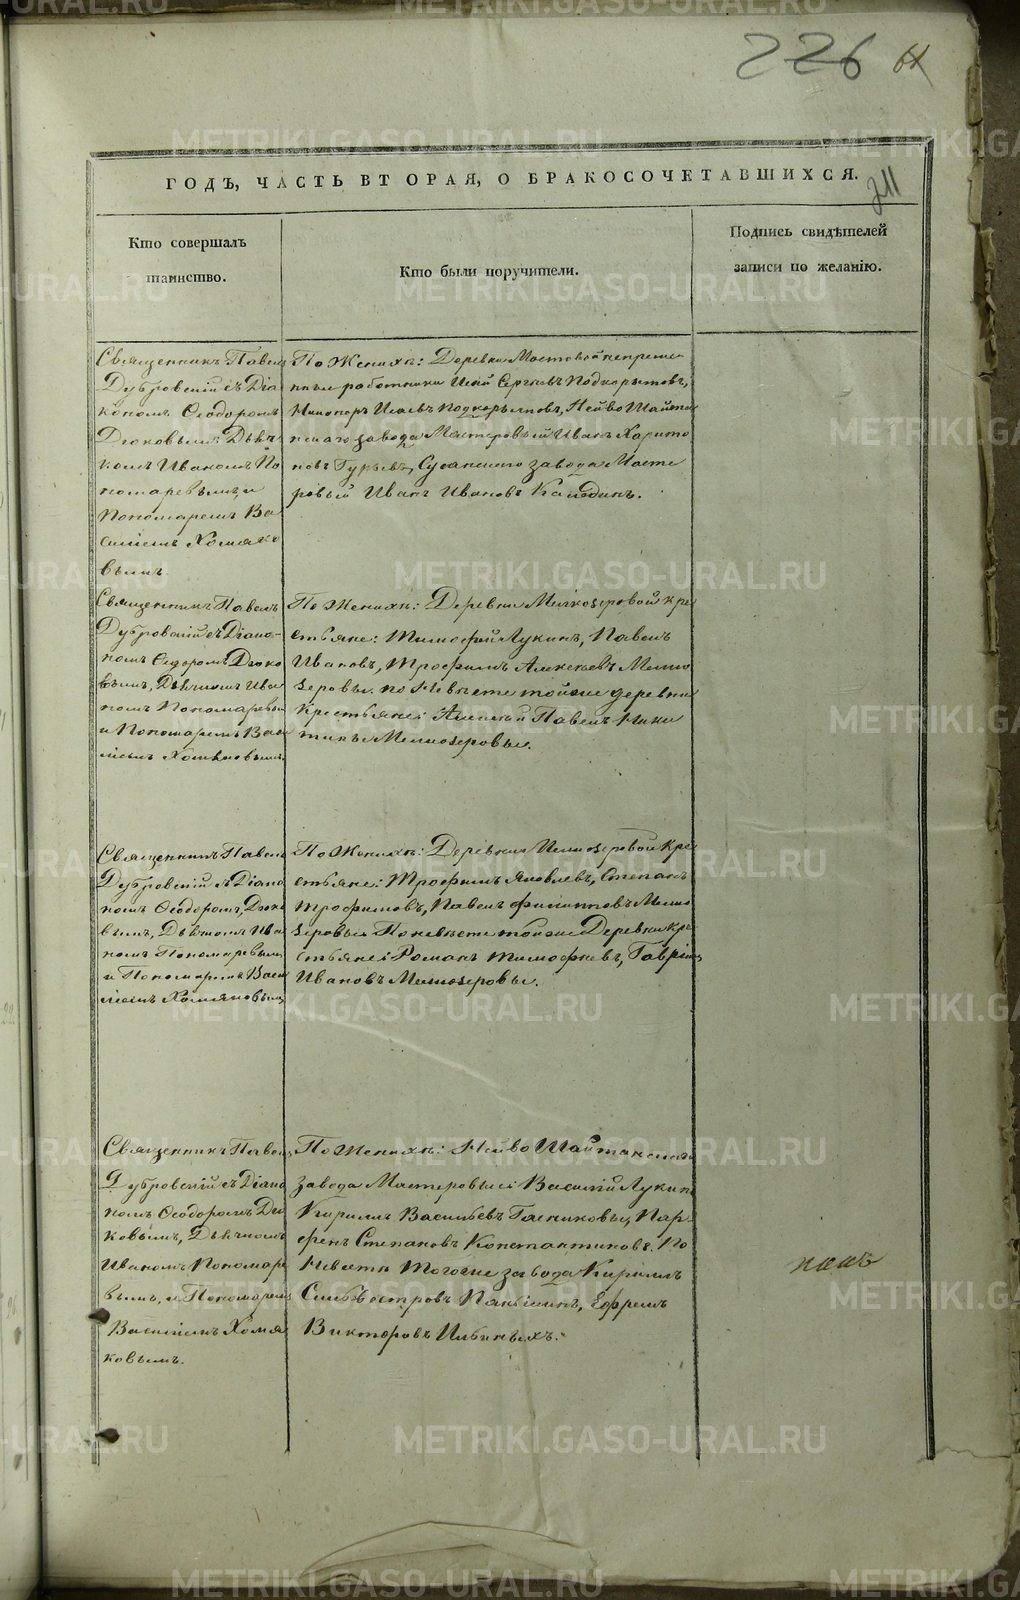 226 61
211
ГОДЪ, ЧАСТЬ ВТОРАЯ, О БРАКОСОЧЕТАВШИХСЯ.
Кто совершалъ
таинство.
Кто были поручители.
Подпись свидѣтелей
записи по желанію.
Священникъ Павелъ
Дубровскій съ Діа
кономъ Ѳеодоромъ
Дюковымъ, Дьяч
комъ Иваномъ По
номаревымъ, и
Пономаремъ Ва
силіемъ Хомяко
вымъ.
По Женихѣ: Деревни Мостовой непреме
нные работники Исай Сергѣевъ Подкорытовъ,
Никиноръ Исаевъ Подкорытовъ, Нейво Шайтан
скаго завода Мастеровый Иванъ Харито
новъ Гурьевъ, Сусанскаго завода Масте
ровый Иванъ Ивановъ
Священникъ Павелъ
Дубровскій съ Діако-
номъ Ѳедоромъ Дюко
вымъ, Дьячкомъ Ива
номъ Пономаревым
и Пономаремъ Васи
ліемъ Хомяковымъ.
По Женихѣ: Деревни Мелкозеровой кре
стьяне: Тимофей Лукинъ, Павелъ
Ивановъ, Трофимъ Алексѣевъ Мелко
зеровы. по Невѣсте тойже деревни
Крестьяне: Алексѣй Павелъ Ники
тины Мелкозеровы.
Священникъ Павелъ
Дубровскій съ Діако
номъ Ѳеодоромъ, Дюко
вымъ, Дьячкомъ Ива
номъ Пономаревымъ
и Пономаремъ Васи
ліемъ Хомяковымъ
По Женихѣ: Деревни Мелкозеровой Кре
стьяне: Трофимъ Яковлевъ, Степанъ
Трофимовъ, Павелъ Филипповъ Мелко
зеровы По невѣсте тойже Деревни Кре
стьяне: Романъ Тимофѣевъ, Гаврилъ
Ивановъ Мелкозеровы.
Священникъ Павелъ
Дубровскій съ Діако
номъ Ѳеодоромъ Дю
ковымъ, Дьячкомъ
Иваномъ Пономаре
вымъ, и Пономаремъ
Василіемъ Хомя
ковымъ.
По Женихѣ: Нейво Шайтанскаго
завода Мастеровые: Василій Лукинъ
Кирилъ Васильевъ Пар-
фенъ Степановъ Константиновъ. По
Невѣстѣ Тогоже завода Кирилъ
Сильвестровъ Паньшинъ, Ефремъ
Викторовъ Ильиныхъ.